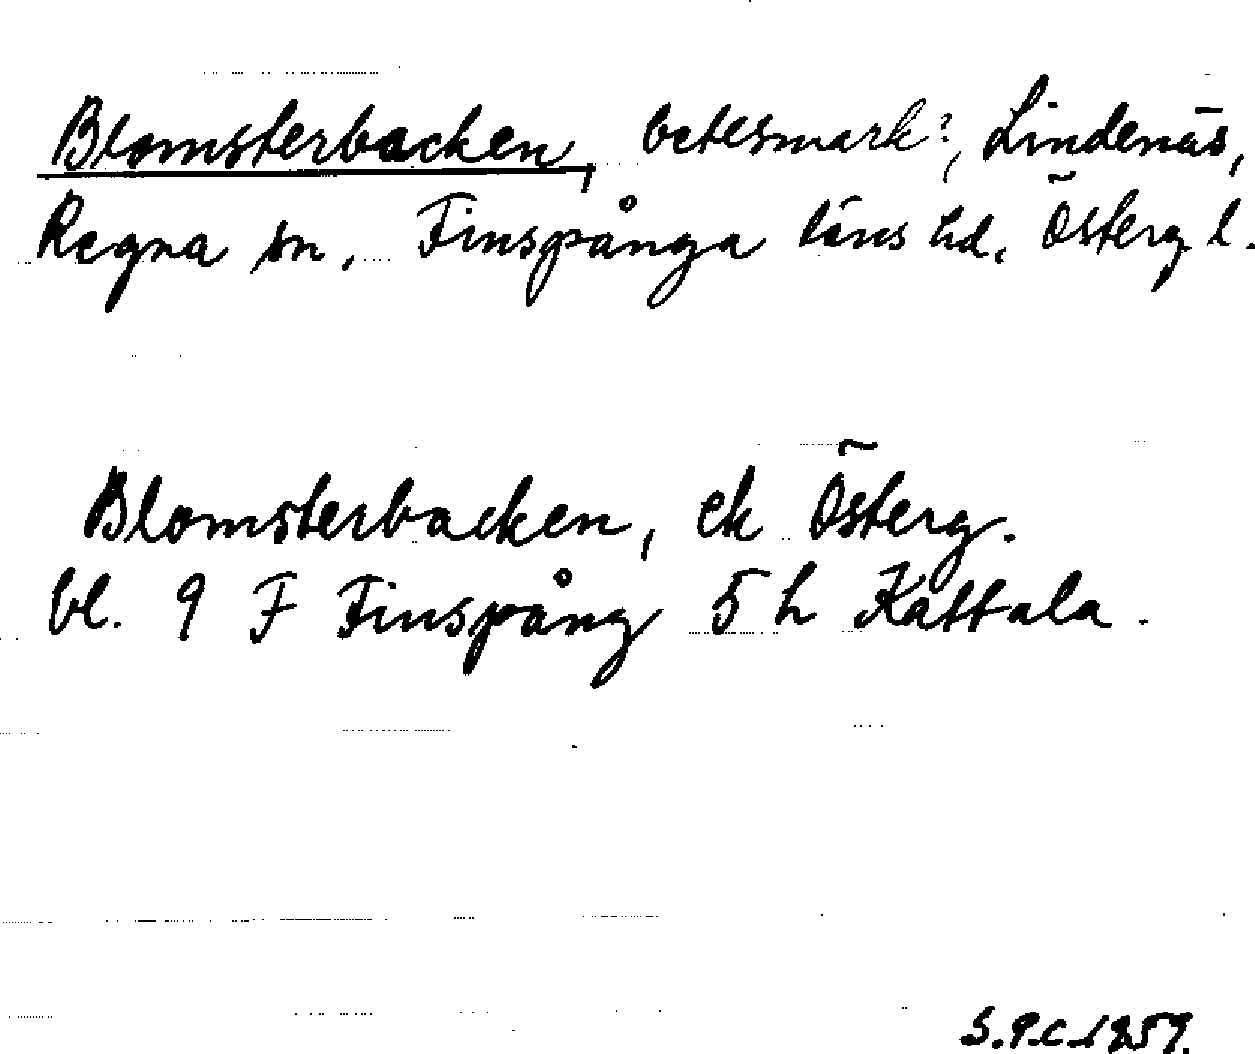 Blomsterbacken, betesmark?, Lindenäs,
Regna sn, Finspånga läns hd, Österg l.
Blomsterbacken, ek Österg.
bl. 9 F Finspång 5 h Kattala.
S.P.C. 1959.